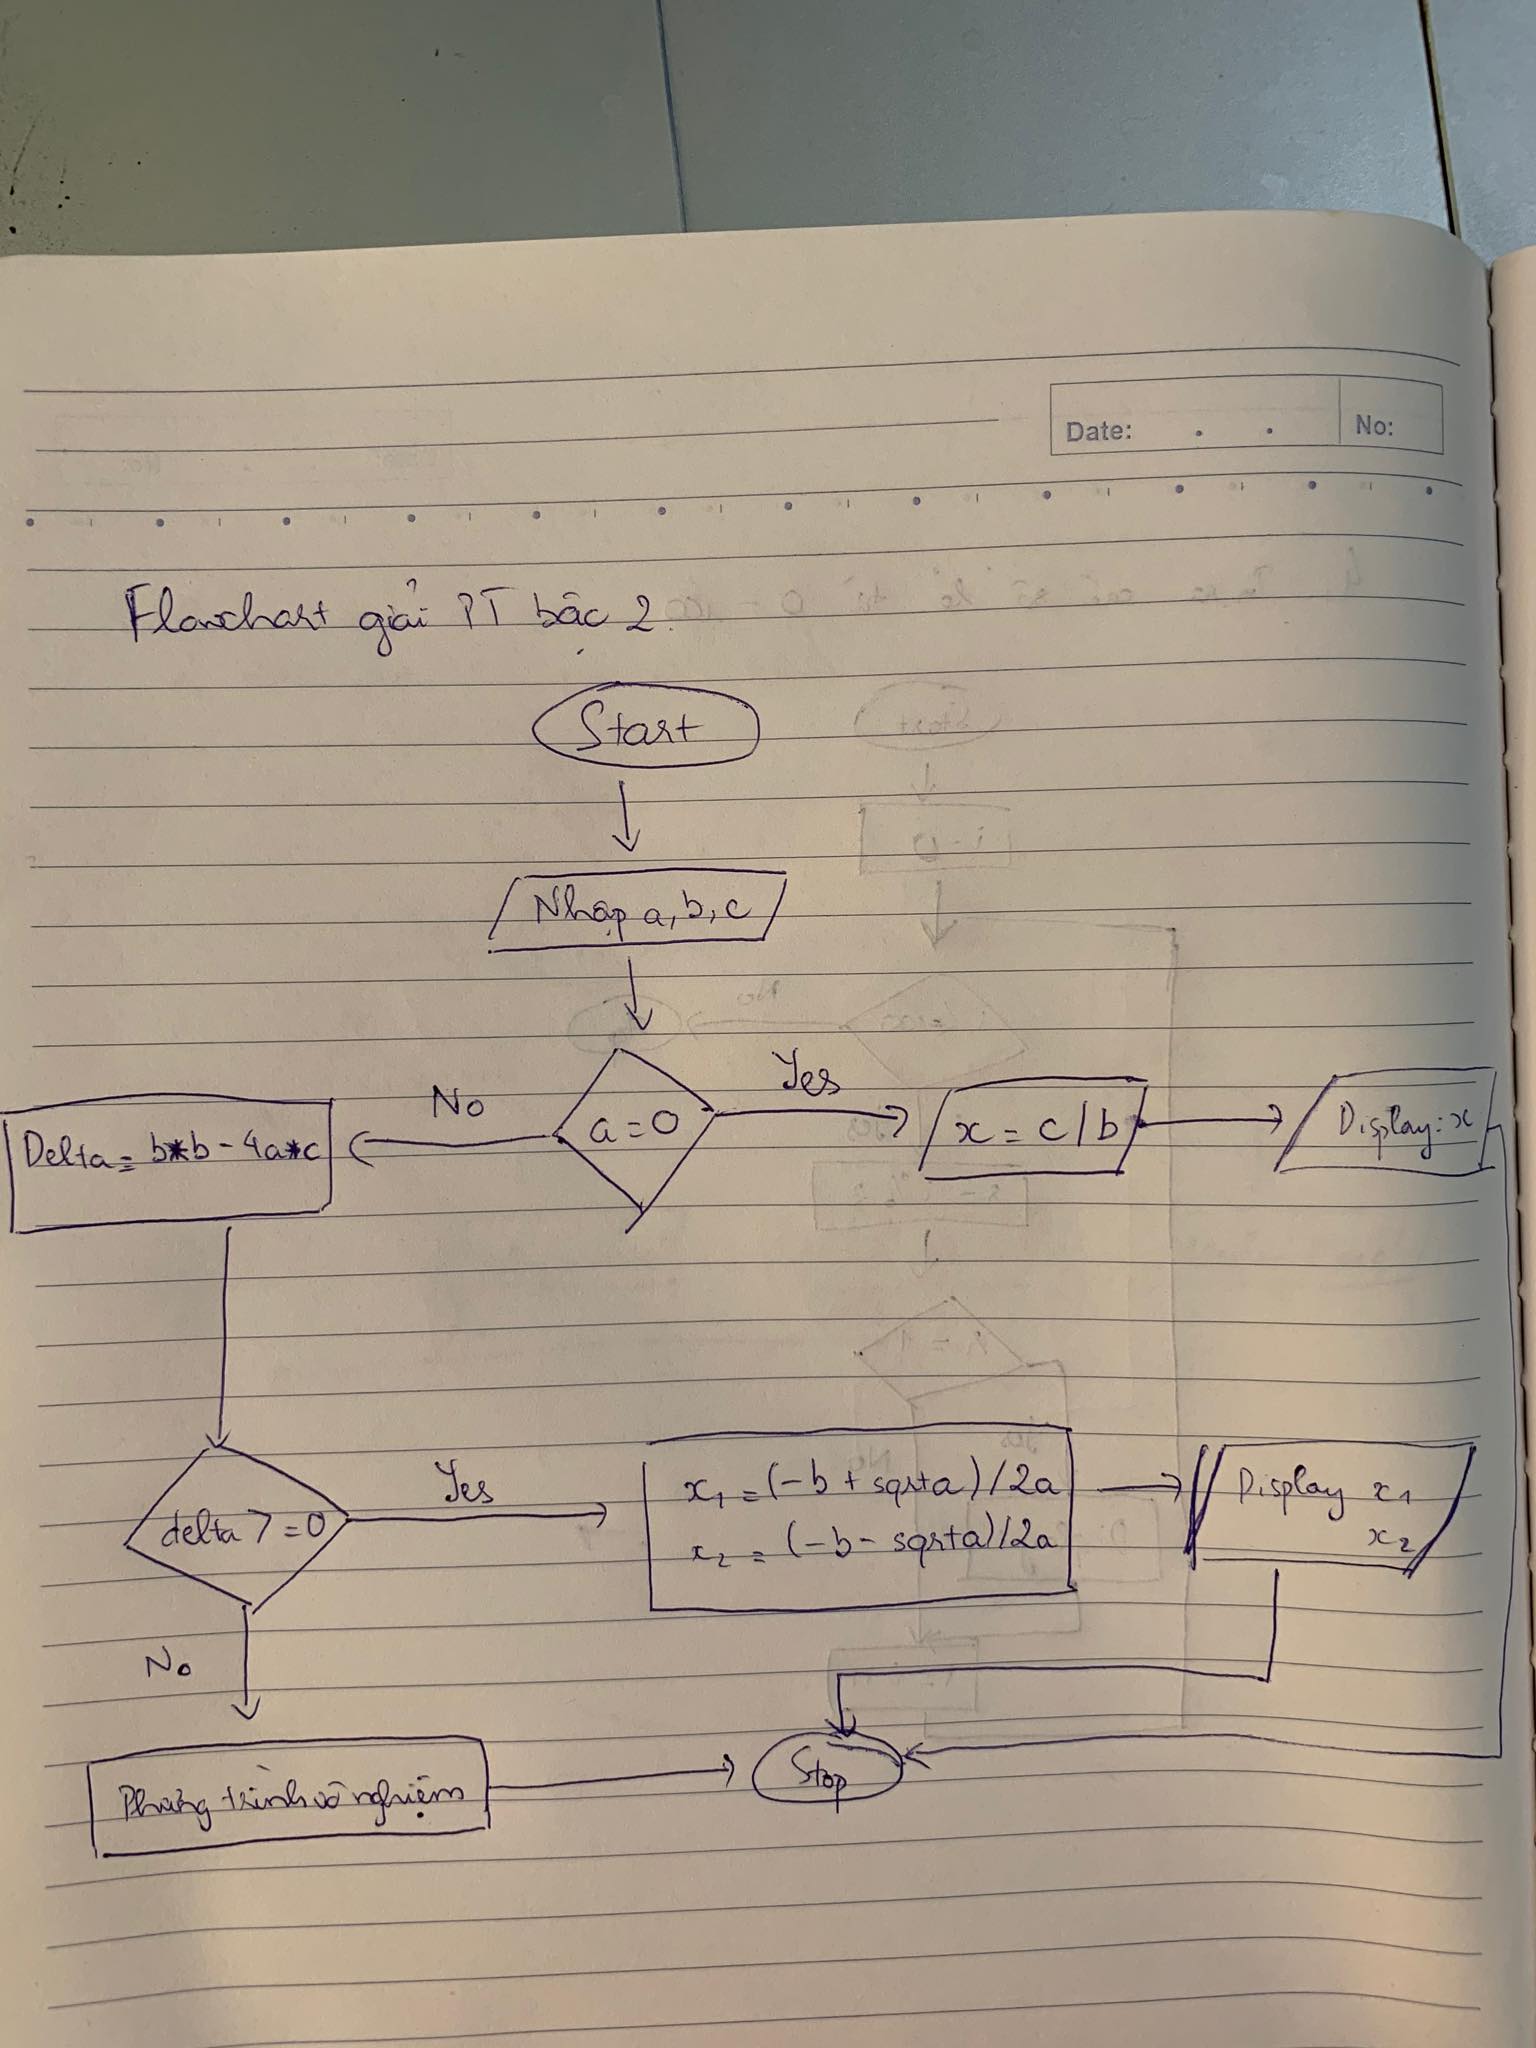 Date: . . No:
Flowchart giải PT bậc 2.
Start
Nhập a, b, c
a = 0
Yes
x = c / b
Display: x
No
Delta = b*b - 4a*c
delta >= 0
Yes
x1 = (-b + sqrta) / 2a
x2 = (-b - sqrta) / 2a
Display x1
x2
No
Phương trình vô nghiệm
Stop